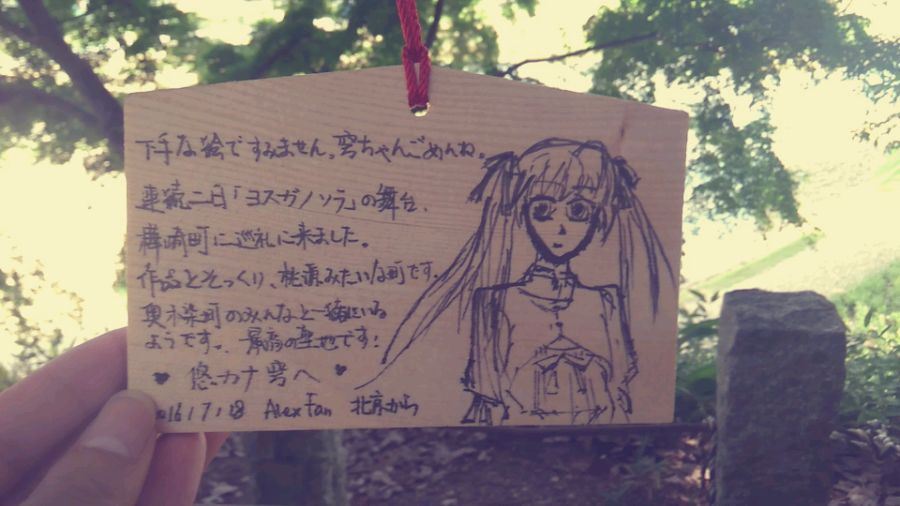 下手な絵ですみません。穹ちゃんごめんね。
連続二日「ヨスガノソラ」の舞台、
樺崎町に巡礼に来ました。
作品とそっくり、桃源みたいな町です。
奥木染町のみんなと一緒にいる
ようです。最高の聖地です!
♥ 悠カナ穹へ ♥
16 1 7 1 18 Alex Fan 北京から